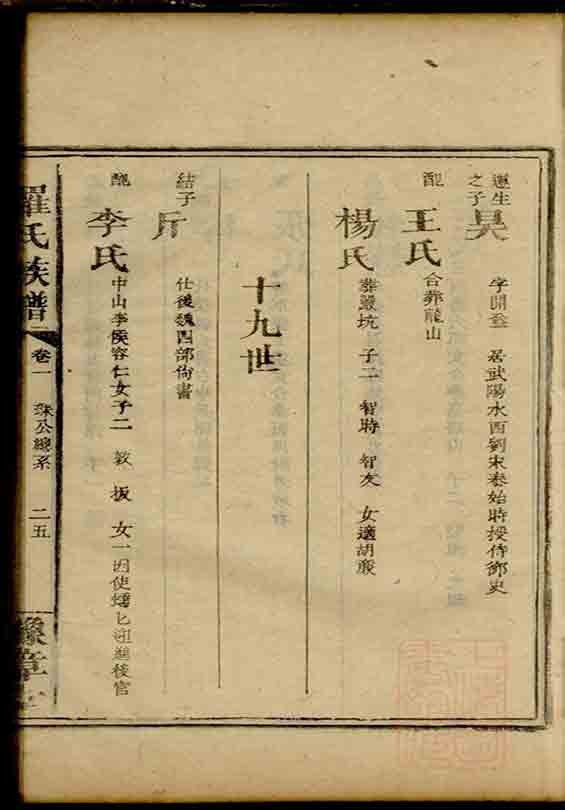 遵生之子 昊 字開 居武陽水西劉宋泰始時授侍御史
配 王氏 合葬龍山
楊氏 葬嚴坑 子二 智時 智友 女適胡
十九世
結子 斤 仕後魏四部尚書
配 李氏 中山李侯容仁女子二 敦 拔 女一因使蠕匕迎選後宮
羅氏族譜 卷一 珠公總系 二五 豫章堂